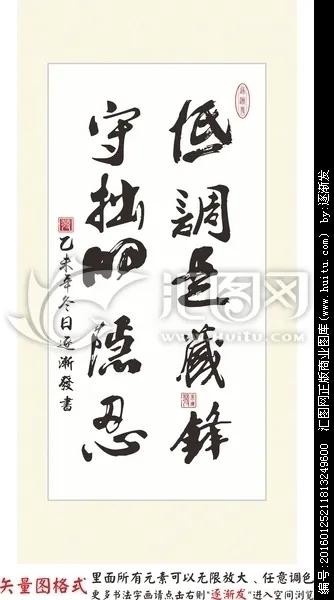 低調 藏鋒
守拙 隱忍
乙未年冬日逐漸發書
汇图网
www.huitu.com
矢量图格式
里面所有元素可以无限放大、任意调色
更多书法字画请点击右则"逐渐发"进入空间浏览
编号:20160125211813249600 汇图网正版商业图库(www.huitu.com) by:逐渐发